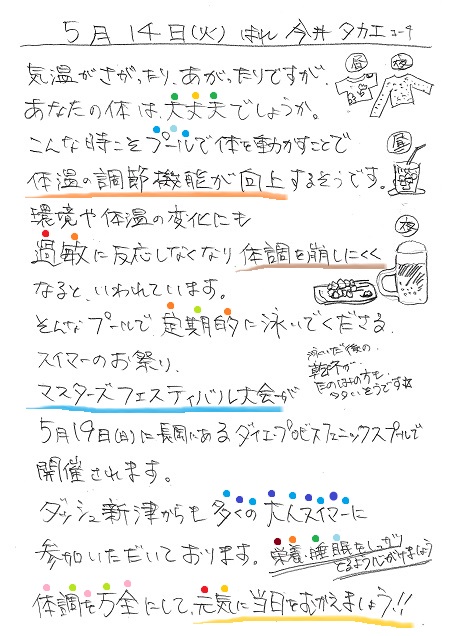 5月14日(火) ぱれん 今井 タカエ コーチ
気温がさがったり、あがったりですが、
昼
夜
あなたの体は、大丈夫でしょうか。
こんな時こそプールで体を動かすことで
昼
体温の調節機能が向上するそうです。
環境や体温の変化にも
夜
過敏に反応しなくなり、体調を崩しにくく
なると、いわれています。
そんなプールで、定期的に泳いでくださる、
スイマーのお祭り、
泳いだ後の、
乾杯が、
たのしみの方も
多いそうです☆
マスターズフェスティバル大会が
5月19日(日)に長岡にあるダイエープロビスフェニックスプールで
開催されます。
ダッシュ新津からも多くの大人スイマーに
参加いただいております。
栄養・睡眠をしっかり
とるよう心がけましょう
体調を万全にして、元気に当日をむかえましょう!!